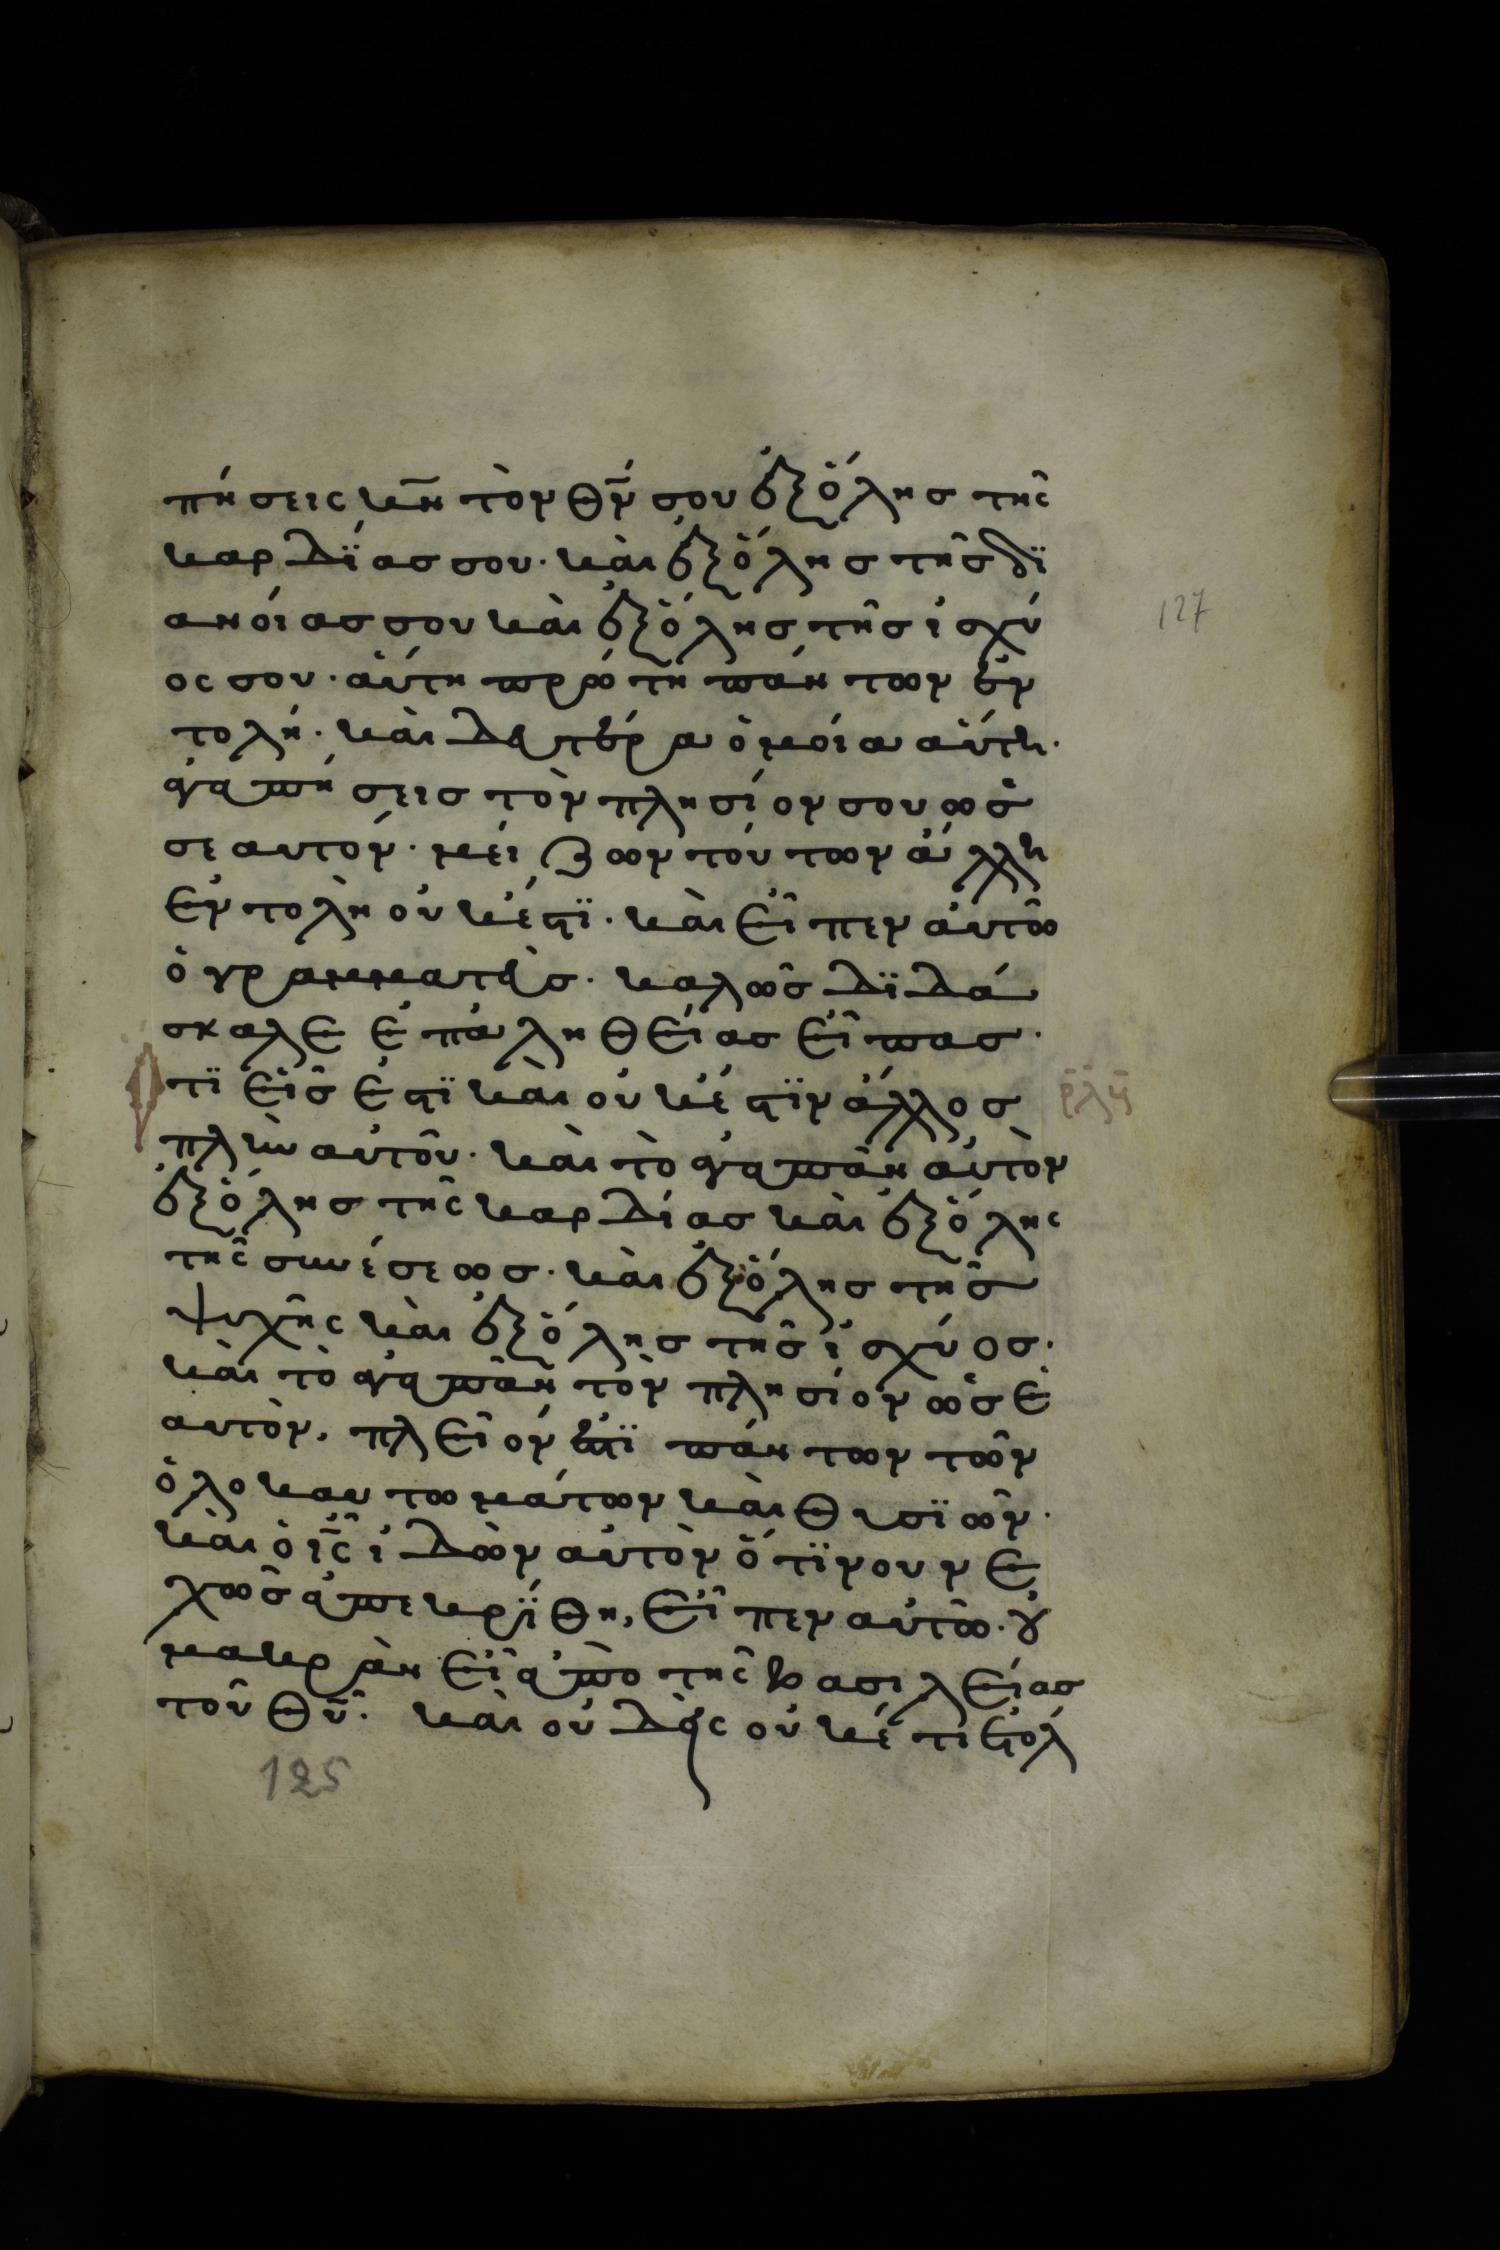 πήσεις κ̅ν̅ τὸν θ̅ν̅ σου ἐξ ὅλησ τῆς
καρδΐασ σου· καὶ ἐξ ὅλησ τῆσ δϊ
ανοίασ σου καὶ ἐξ ὅλησ τῆσ ἰσχύ
ος σου· αὕτη πρώτη πάντων ἐν
τολή· καὶ δευτέρα ὁμοία αὕτη·
ἀγαπήσεισ τὸν πλησίον σου ὡσ
σεαυτόν· μείζων τούτων ἄλλη
ἐντολὴ οὐκ ἔστϊ· καὶ εἶπεν αὐτῶ
ὁ γραμματεὺσ· καλῶσ διδά
σκαλε ἐπ' ἀληθείασ εἶπασ·
127
ὅτϊ εἷσ ἐστϊ καὶ οὐκ ἔστϊν ἄλλοσ
ρ̅λ̅ς̅
πλὴν αὐτοῦ· καὶ τὸ ἀγαπᾶν αὐτὸν
ἐξ ὅλησ τῆς καρδίασ καὶ ἐξ ὅλης
τῆς συνέσεωσ· καὶ ἐξ ὅλησ τῆσ
ψυχῆς καὶ ἐξ ὅλησ τῆσ ἰσχύοσ·
καὶ τὸ ἀγαπᾶν τὸν πλησίον ὡσ ἑ
αυτὸν, πλεῖόν ἐστϊ πάντων τῶν
ὁλοκαυτωμάτων καὶ θυσϊῶν·
καὶ ὁ ι̅ς̅ ἰδὼν αὐτὸν ὅτϊ νουνε
χῶσ ἀπεκρίθη, εἶπεν αὐτῶ· οὐ
μακρὰν εἶ ἀπὸ τῆς βασιλείασ
τοῦ θ̅υ̅· καὶ οὐδεὶς οὐκέτι ἐτόλ
125